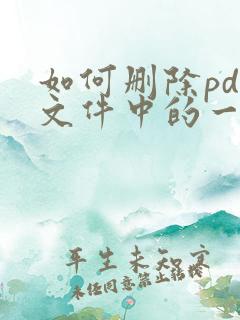 如何删除pd
文件中的一
平生未知寒
未经同意禁止转载